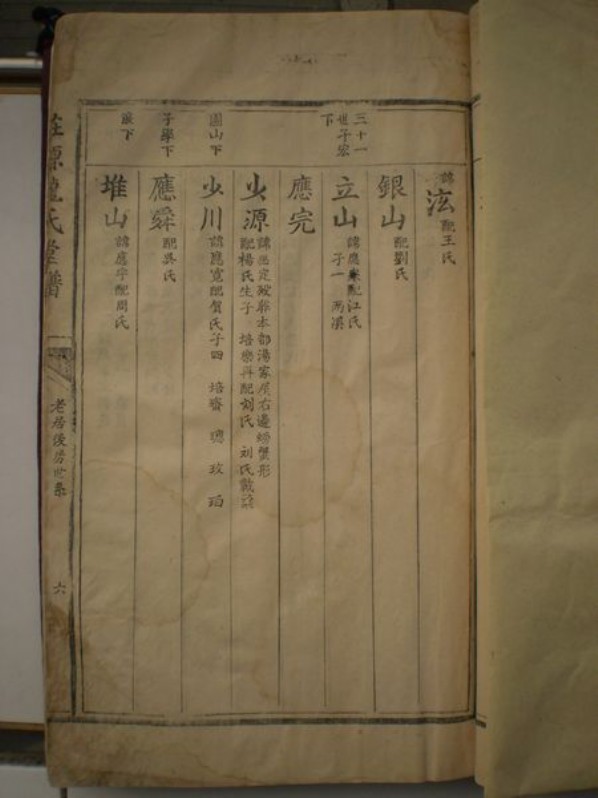 諱泫配王氏
三十一
世子宏
下
銀山配劉氏
立山諱應配江氏
子一
應完
少源諱應定歿葬本部湯家屋右邊螃蟹形
配楊氏生子 培樂再配刘氏 刘氏
圖山下
少川諱應寬配賀氏子四 培齊 璁 玫 珀
子學下
應舜配吳氏
下
堆山諱應宇配周氏
莊源氏堂譜
老居後房世系
六